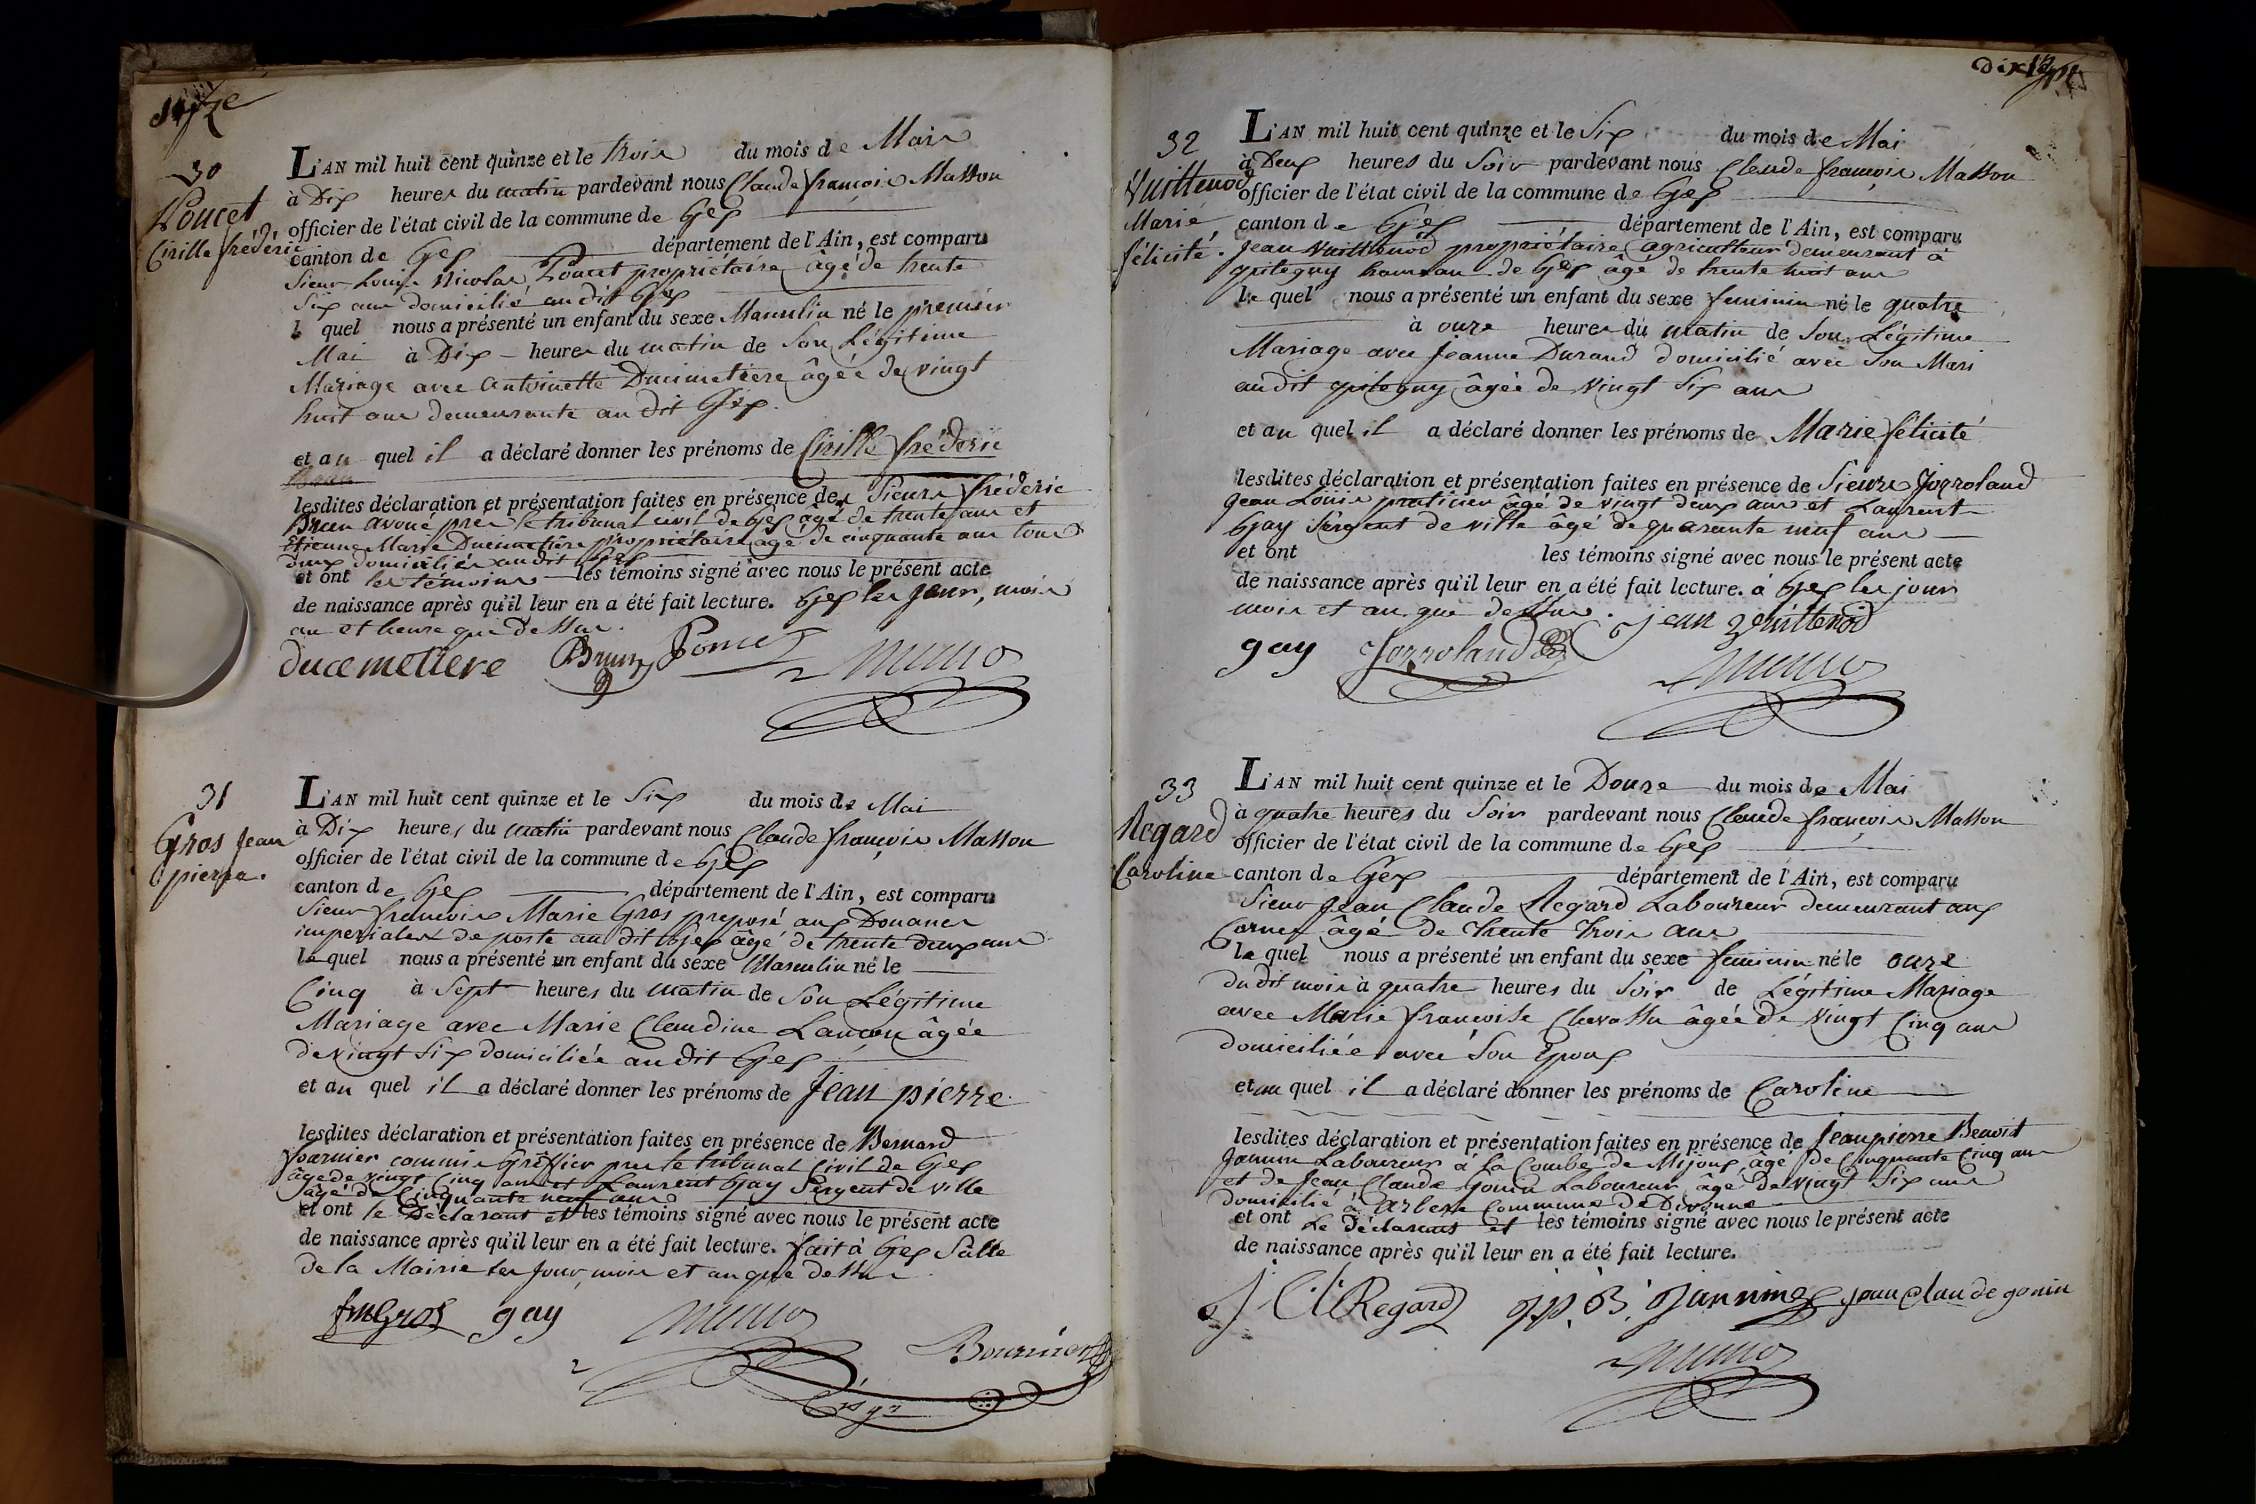 seize
30
Poncet
Cirille frédéric
L'AN mil huit cent quinze et le trois du mois de Mai
à Dix heures du matin pardevant nous Claude françois Masson
officier de l'état civil de la commune de Gex
canton de Gex département de l'Ain, est comparu
Sieur Louis Nicolas Poncet propriétaire âgé de trente
Six ans domicilié au dit Gex
l quel nous a présenté un enfant du sexe Masculin né le premier
Mai à Dix heures du matin de Son Légitime
Mariage avec Antoinette Ducimetière âgée de vingt
huit ans demeurante au dit Gex.
et au quel il a déclaré donner les prénoms de Cirille frédéric
lesdites déclaration et présentation faites en présence des Sieurs frédéric
Brun avoué près le tribunal civil de Gex âgé de trente ans et
Etienne Marie Ducimetière propriétaire âgé de cinquante ans tous
deux domiciliés au dit Gex
et ont les témoins les témoins signé avec nous le présent acte
de naissance après qu'il leur en a été fait lecture. Gex les jour, mois
an et heure que dessus.
ducemetiere Brun Poncet
31
Gros Jean
pierre.
L'AN mil huit cent quinze et le Six du mois de Mai
à Dix heures du matin pardevant nous Claude françois Masson
officier de l'état civil de la commune de Gex
canton de Gex département de l'Ain, est comparu
Sieur françois Marie Gros preposé aux Douanes
imperiales de poste au dit Gex âgé de trente deux ans
le quel nous a présenté un enfant du sexe Masculin né le
Cinq à Sept heures du matin de Son Légitime
Mariage avec Marie Claudine Lançon âgée
de vingt Six domiciliée au dit Gex
et au quel il a déclaré donner les prénoms de Jean pierre
lesdites déclaration et présentation faites en présence de Bernard
fournier commis Greffier près le tribunal Civil de Gex
âgé de vingt Cinq ans et Laurent Gay Sergent de ville
âgé de Cinquante neuf ans
et ont le Déclarant et les témoins signé avec nous le présent acte
de naissance après qu'il leur en a été fait lecture. fait à Gex Salle
de la Mairie les jour, mois et an que dessus
fm Gros gay
dix sept
32
Vuittenod
Marie
félicité.
L'AN mil huit cent quinze et le Six du mois de Mai
à Deux heures du Soir pardevant nous Claude françois Masson
officier de l'état civil de la commune de Gex
canton de Gex département de l'Ain, est comparu
Jean Vuittenod propriétaire agriculteur demeurant à
pitegny hameau de Gex âgé de trente huit ans
le quel nous a présenté un enfant du sexe feminin né le quatre
à onze heures du matin de Son Légitime
Mariage avec Jeanne Durand domicilié avec Son Mari
au dit pitegny âgée de vingt Six ans
et au quel il a déclaré donner les prénoms de Marie félicité
lesdites déclaration et présentation faites en présence de Sieurs Jorroland
Jean Louis praticien âgé de vingt deux ans et Laurent
Gay Sergent de ville âgé de quarante neuf ans
et ont les témoins signé avec nous le présent acte
de naissance après qu'il leur en a été fait lecture. à Gex les jour
mois et an que dessus.
gay Jorroland jean vuittenod
33
Regard
Caroline
L'AN mil huit cent quinze et le Douze du mois de Mai
à quatre heures du Soir pardevant nous Claude françois Masson
officier de l'état civil de la commune de Gex
canton de Gex département de l'Ain, est comparu
Sieur Jean Claude Regard Laboureur demeurant aux
Cornes âgé de trente trois ans
le quel nous a présenté un enfant du sexe feminin né le onze
du dit mois à quatre heures du Soir de Légitime Mariage
avec Marie françoise Chevassu âgée de vingt Cinq ans
domiciliée avec Son Epoux
et au quel il a déclaré donner les prénoms de Caroline
lesdites déclaration et présentation faites en présence de Jean pierre Benoit
Janin Laboureur à la Combe de Mijoux, âgé de Cinquante Cinq ans
et de Jean Claude gonin Laboureur, âgé de vingt Six ans
domicilié à Arbere Commune de Divonne
et ont Le Déclarant et les témoins signé avec nous le présent acte
de naissance après qu'il leur en a été fait lecture.
J. Cl. Regard J.P. B. Jannin jean Claude gonin